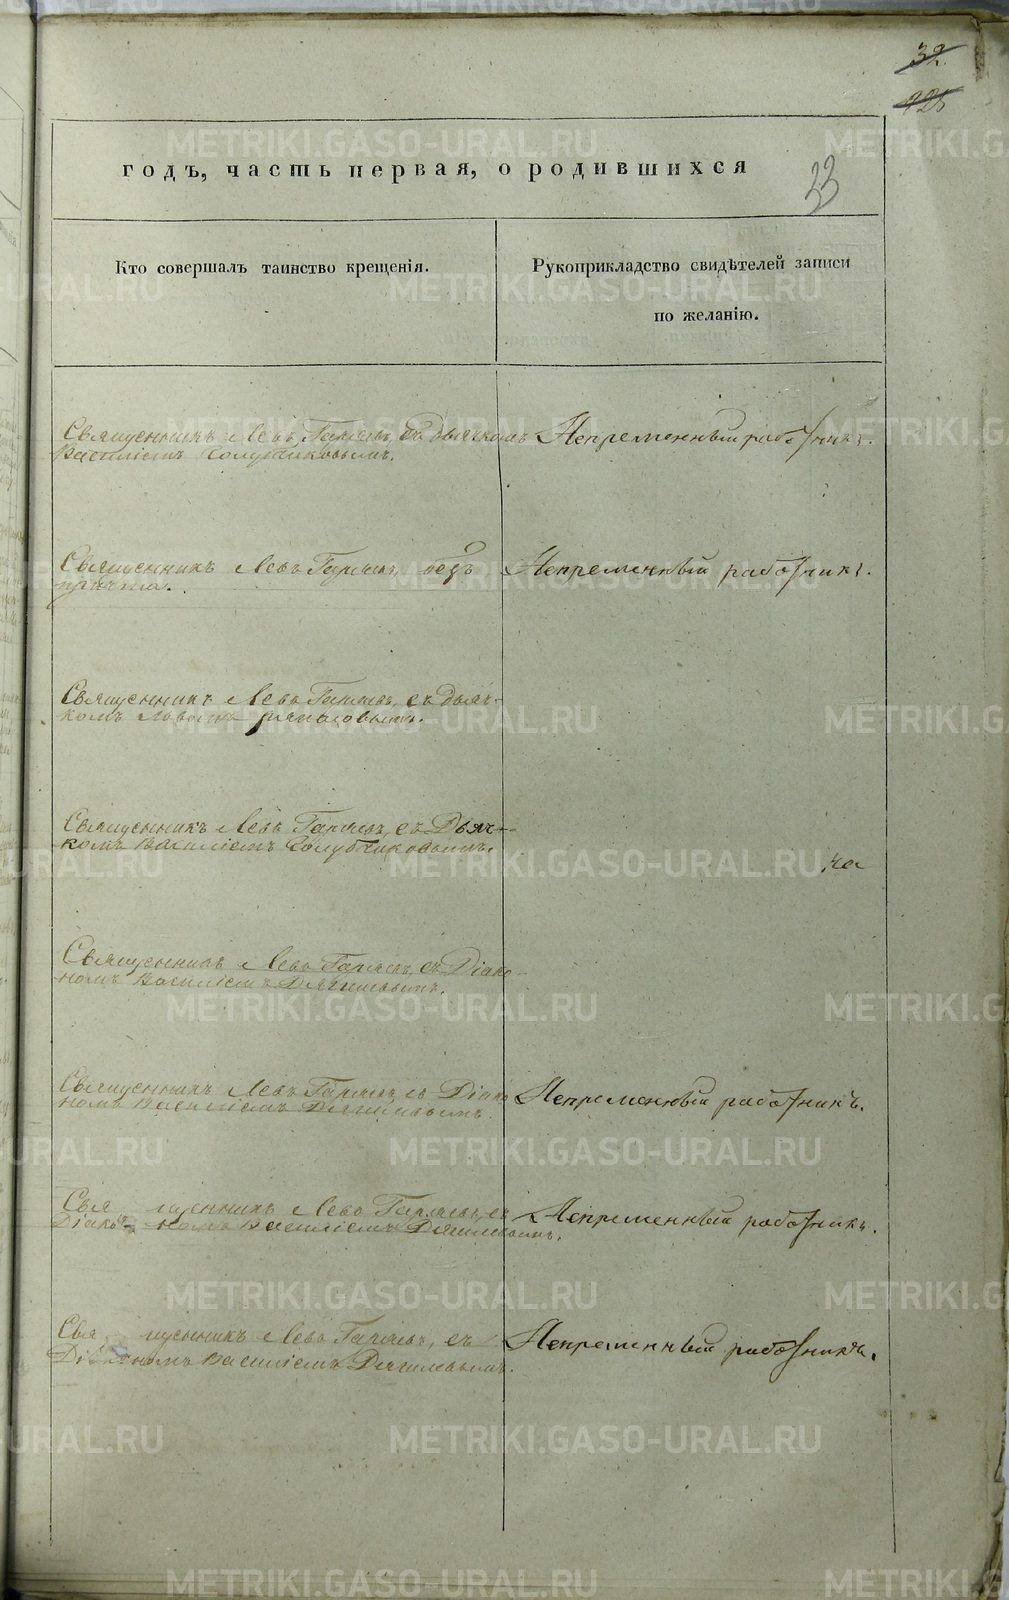 32
125
годъ, часть первая, о родившихся
23
Кто совершалъ таинство крещенія.
Рукоприкладство свидѣтелей записи
по желанію.
Священникъ Левъ съ Дьячкомъ
Василіемъ Голубчиковымъ.
Непременный работникъ.
Священникъ Левъ безъ
причта.
Непременный работникъ.
Священникъ Левъ съ Дьяч-
комъ
Священникъ Левъ съ Дьяч-
комъ Василіемъ Голубчиковымъ.
на
Священникъ Левъ съ Діако-
номъ Василіемъ Дягилевымъ.
Священникъ Левъ съ Діако-
номъ Василіемъ Дягилевымъ.
Непременный работникъ.
Священникъ Левъ съ
Діако-номъ Василіемъ Дягилевымъ.
Непременный работникъ.
Священникъ Левъ съ
Діакономъ Василіемъ Дягилевымъ.
Непременный работникъ.
METRIKI.GASO-URAL.RU